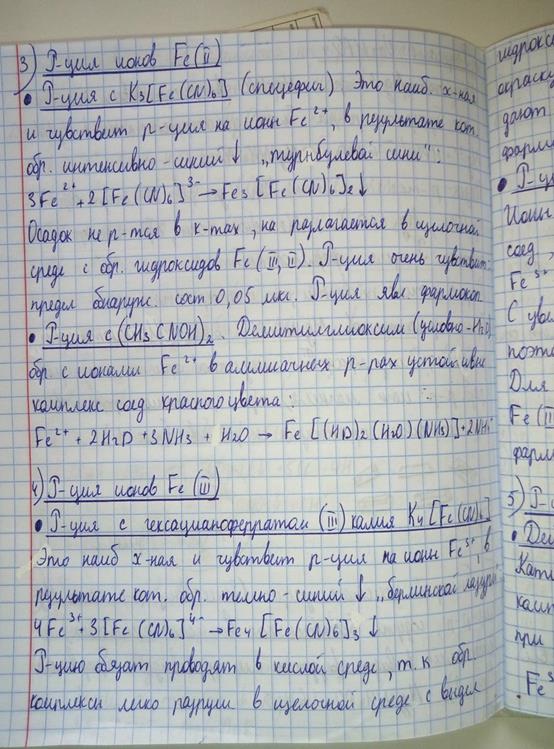 3) Р-ция ионов Fe(II)
• Р-ция с K3[Fe(CN)6] (специфич) Это наиб. х-ная
и чувствит р-ция на ионы Fe2+, в результате кот.
обр. интенсивно-синий ↓ „турнбулевой сини":
3Fe2+ + 2[Fe(CN)6]3- → Fe3[Fe(CN)6]2↓
Осадок не р-тся в к-тах, на разлагается в щелочной
среде с обр. гидроксидов Fe(III, II). Р-ция очень чувствит.
предел обнаруж. сост 0,05 мкг. Р-ция явл. фармокоп
• Р-ция с (CH3CNOH)2. Диметилглиоксим (условно-H2D)
обр с ионами Fe2+ в аммиачных р-рах устойчивое
комплекс соед красного цвета:
Fe2+ + 2H2D + 3NH3 + H2O → Fe[(HD)2(H2O)(NH3)]+2NH4
4) Р-ция ионов Fe(III)
• Р-ция с гексацианоферратом (III) калия K4[Fe(CN)6]
Это наиб х-ная и чувствит р-ция на ионы Fe3+, в
результате кот. обр. темно-синий ↓ „берлинской лазури
4Fe3+ + 3[Fe(CN)6]4- → Fe4[Fe(CN)6]3↓
Р-цию обязат проводят в кислой среде, т.к обр.
комплексы легко разруш в щелочной среде с выдел
гидрокс
окраску
дают
фарма
• Р-ц
Ионы
соед,
Fe3+
С уве
поэто
Для
Fe(II
фарм
5) Р-ц
Кати
комп
при
Fe3